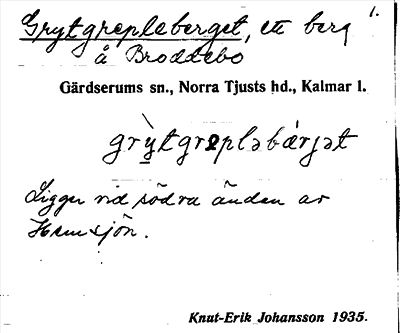 Grytgrepleberget, ett berg 1.
å Broddebo
Gärdserums sn., Norra Tjusts hd., Kalmar l.
grỳtgrepləbǽrjət
Ligger vid södra änden av
Hemsjön.
Knut-Erik Johansson 1935.